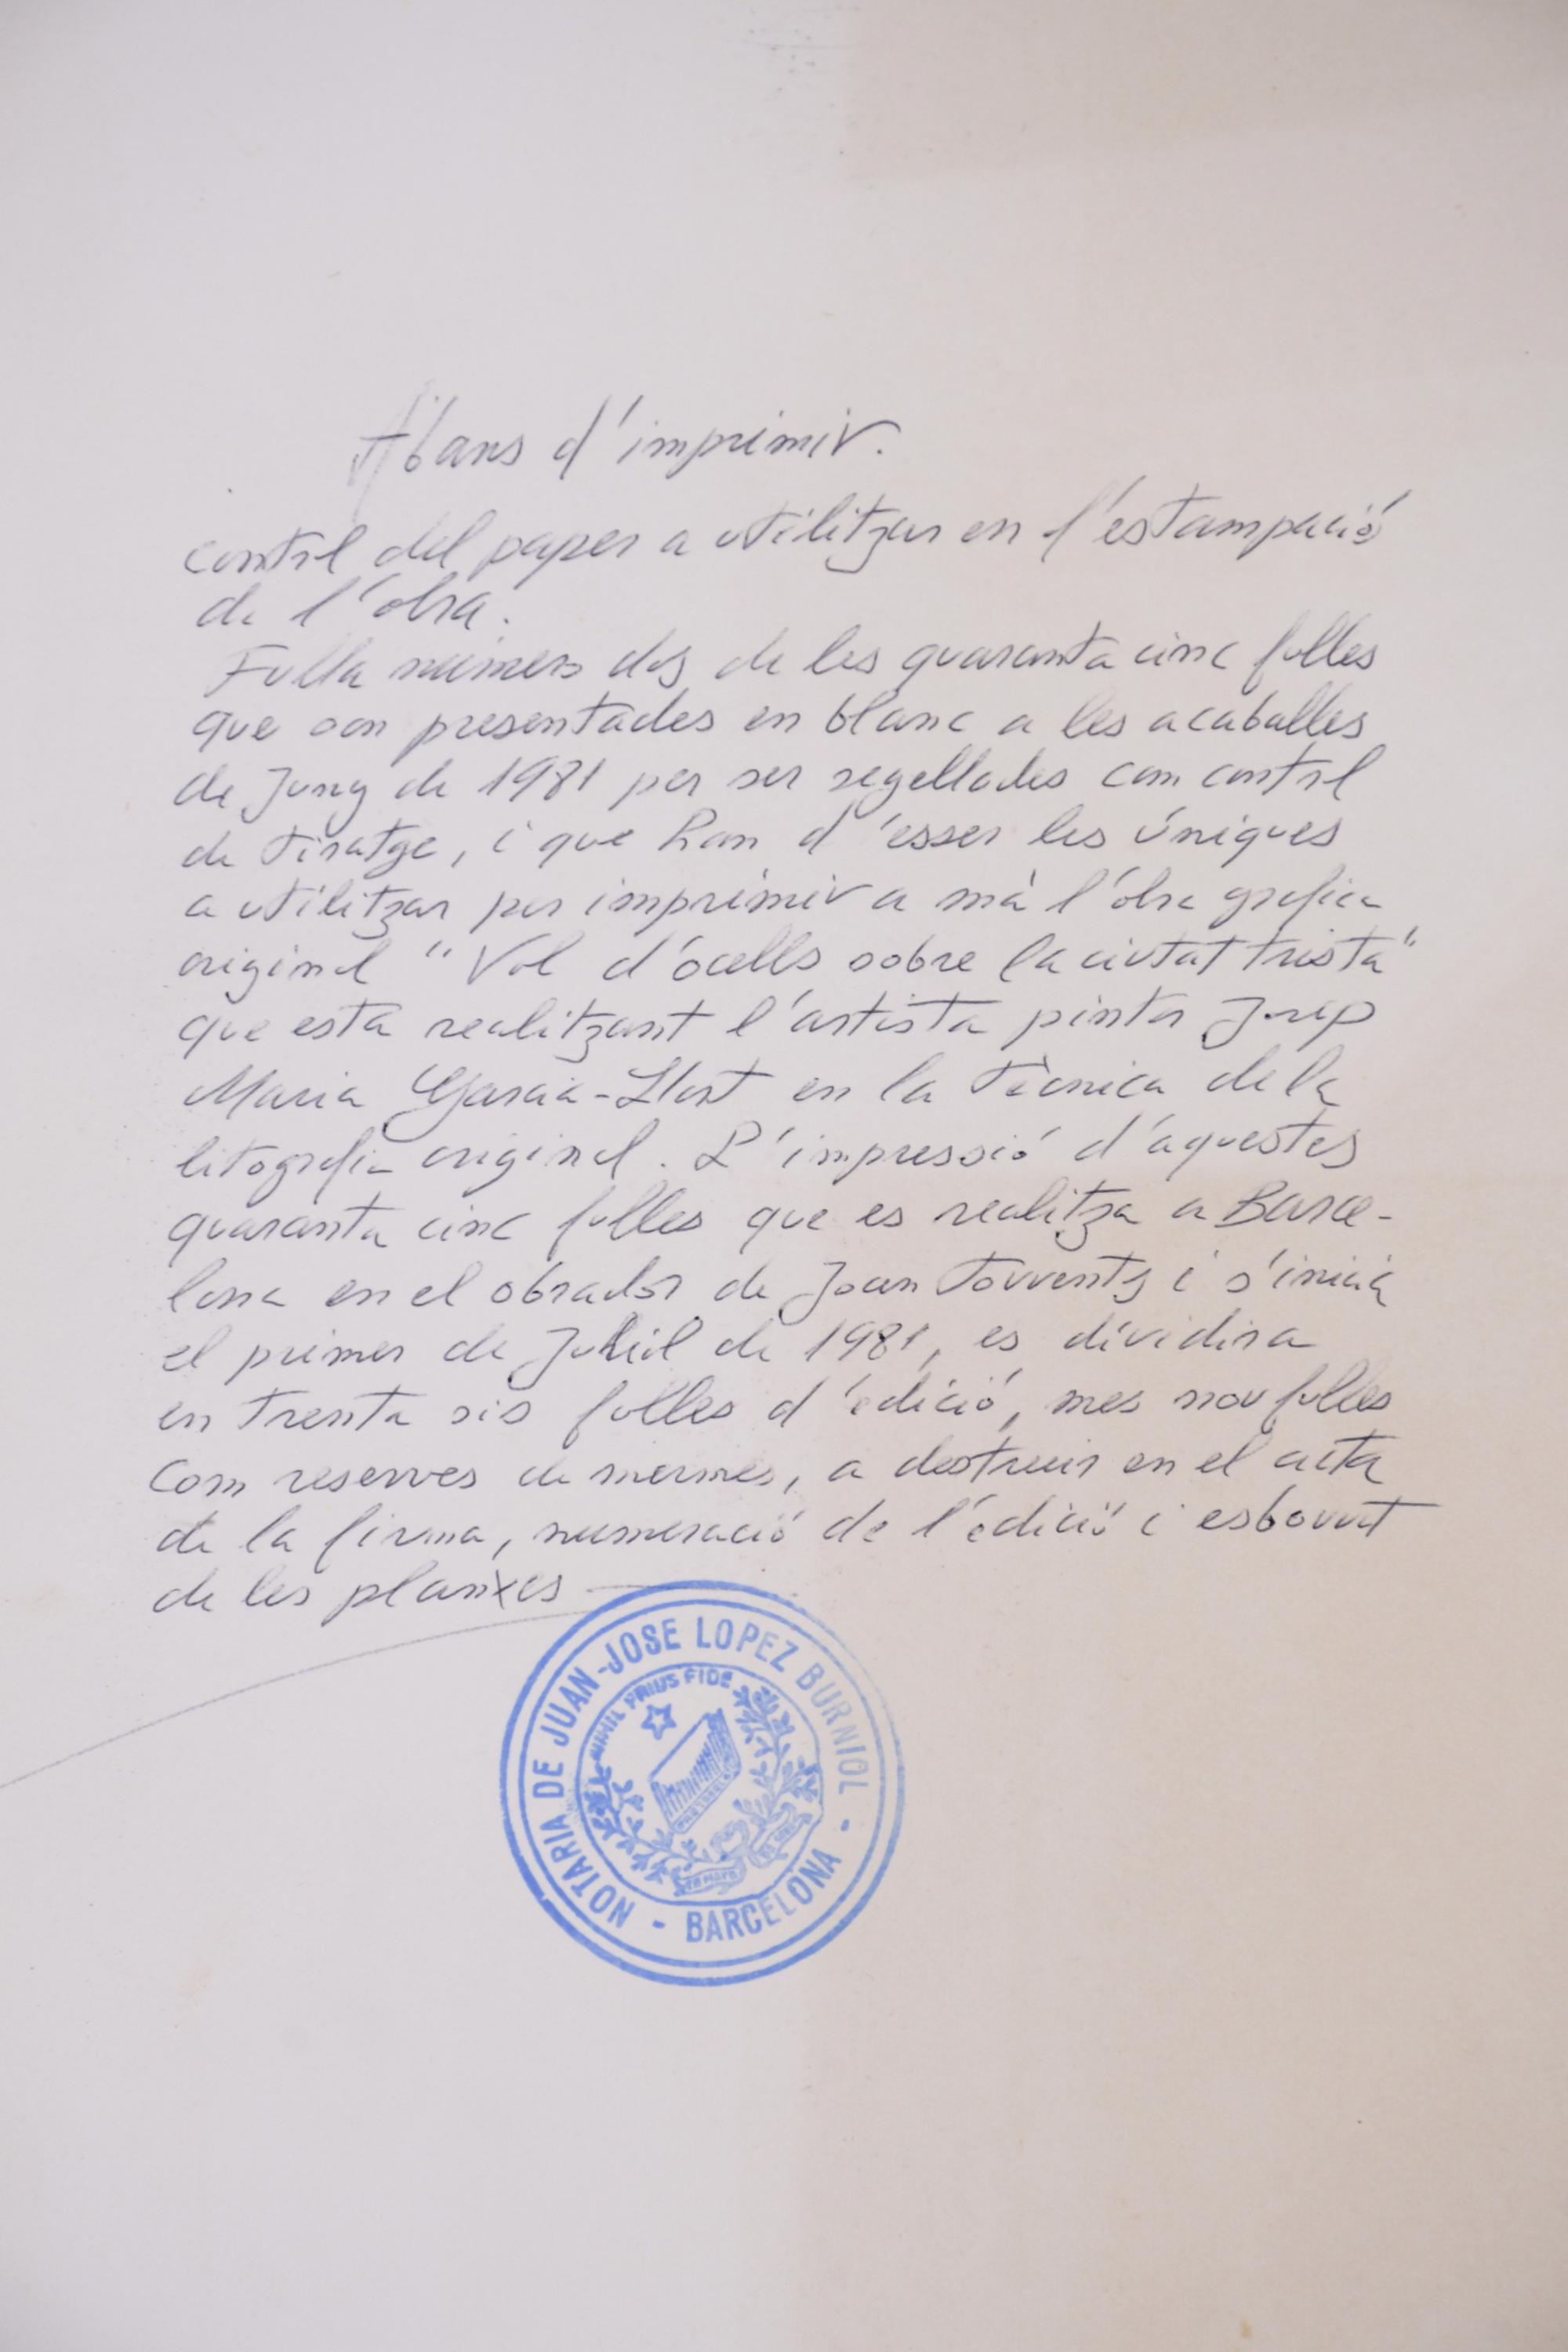 Abans d'imprimir.
control del paper a utilitzar en l'estampació
de l'obra.
Fulla número dos de les quaranta cinc fulles
que son presentades en blanc a les acaballes
de Juny de 1981 per ser segellades com control
de tiratge, i que han d'esser les úniques
a utilitzar per imprimir a mà l'obra grafica
original "Vol d'ocells sobre la ciutat trista"
que esta realitzant l'artista pintor Josep
Maria Garcia-Llort en la tècnica de la
litografia original. L'impressió d'aquestes
quaranta cinc fulles que es realitza a Barce-
lona en el obrador de Joan Torrents i s'inicià
el primer de Juliol de 1981, es dividira
en trenta sis fulles d'edició, mes nou fulles
com reserves de mermes, a destruir en el acta
de la firma, numeració de l'edició i esborrat
de les planxes
NOTARIA DE JUAN-JOSE LOPEZ BURNIOL - BARCELONA -
NIHIL PRIUS FIDE